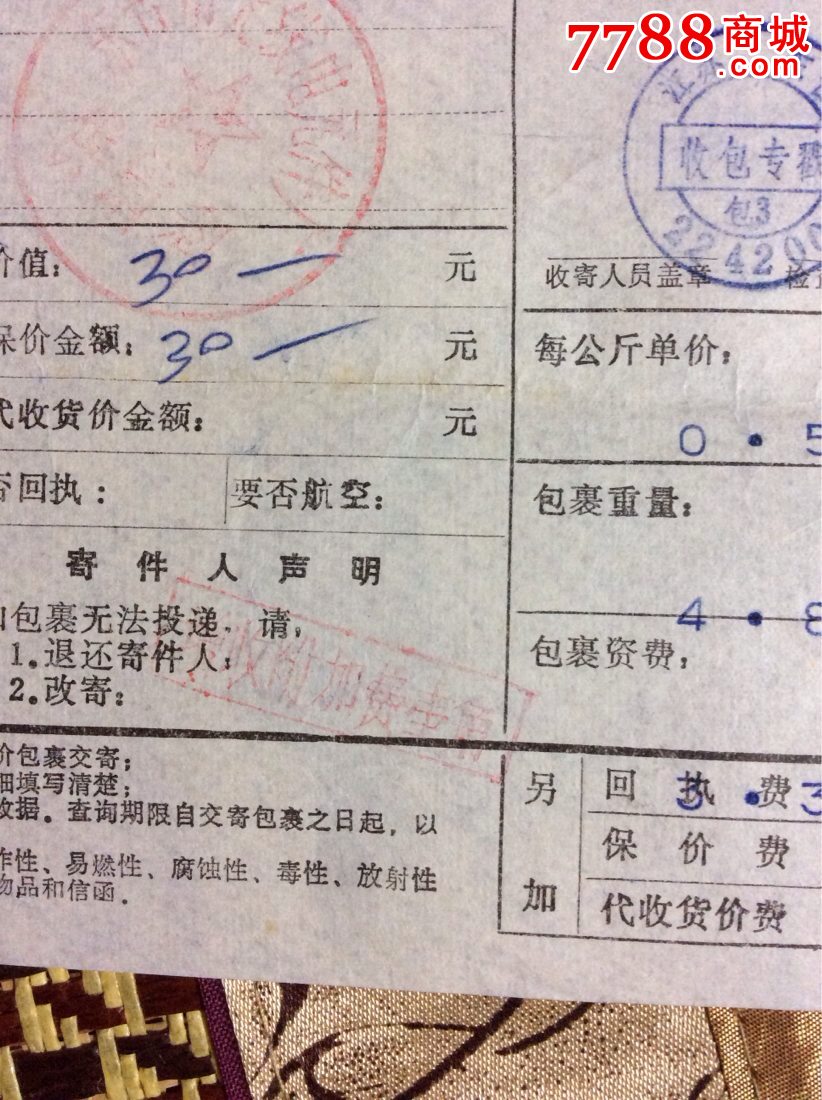 7788商城
.com
江
收包专戳
包3
224200
价值: 30— 元
收寄人员盖章
保价金额: 30— 元
每公斤单价:
代收货价金额: 元
0.5
否回执: 要否航空:
包裹重量:
寄件人声明
4.8
包裹无法投递, 请:
包裹资费:
1.退还寄件人:
2.改寄:
收附加费
价包裹交寄;
细填写清楚;
收据。查询期限自交寄包裹之日起, 以
作性、易燃性、腐蚀性、毒性、放射性
物品和信函.
另加
回执费
3.3
保价费
代收货价费